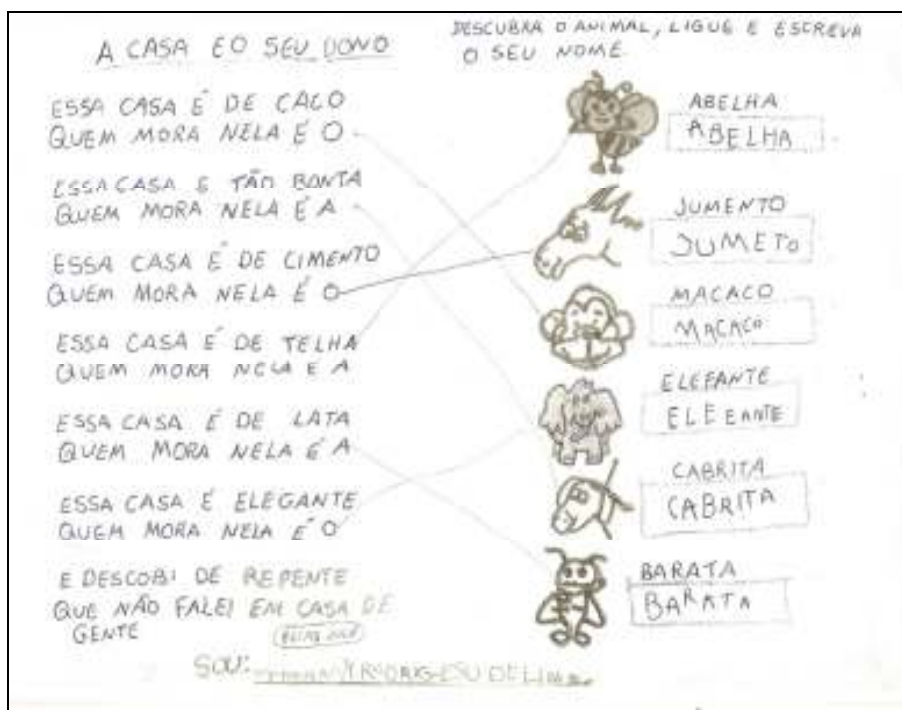 A CASA EO SEU DONO
DESCUBRA O ANIMAL, LIGUE E ESCREVA
O SEU NOME.
ESSA CASA É DE CACO
QUEM MORA NELA É O
ESSA CASA E TÃO BONTA
QUEM MORA NELA É A
ESSA CASA É DE CIMENTO
QUEM MORA NELA É O
ESSA CASA É DE TELHA
QUEM MORA NELA E A
ESSA CASA É DE LATA
QUEM MORA NELA É A
ESSA CASA É ELEGANTE
QUEM MORA NELA É O
E DESCOBI DE REPENTE
QUE NÃO FALEI EM CASA DE
GENTE
SOU:
ABELHA
ABELHA
JUMENTO
JUMETO
MACACO
MACACO
ELEFANTE
ELEEANTE
CABRITA
CABRITA
BARATA
BARATA